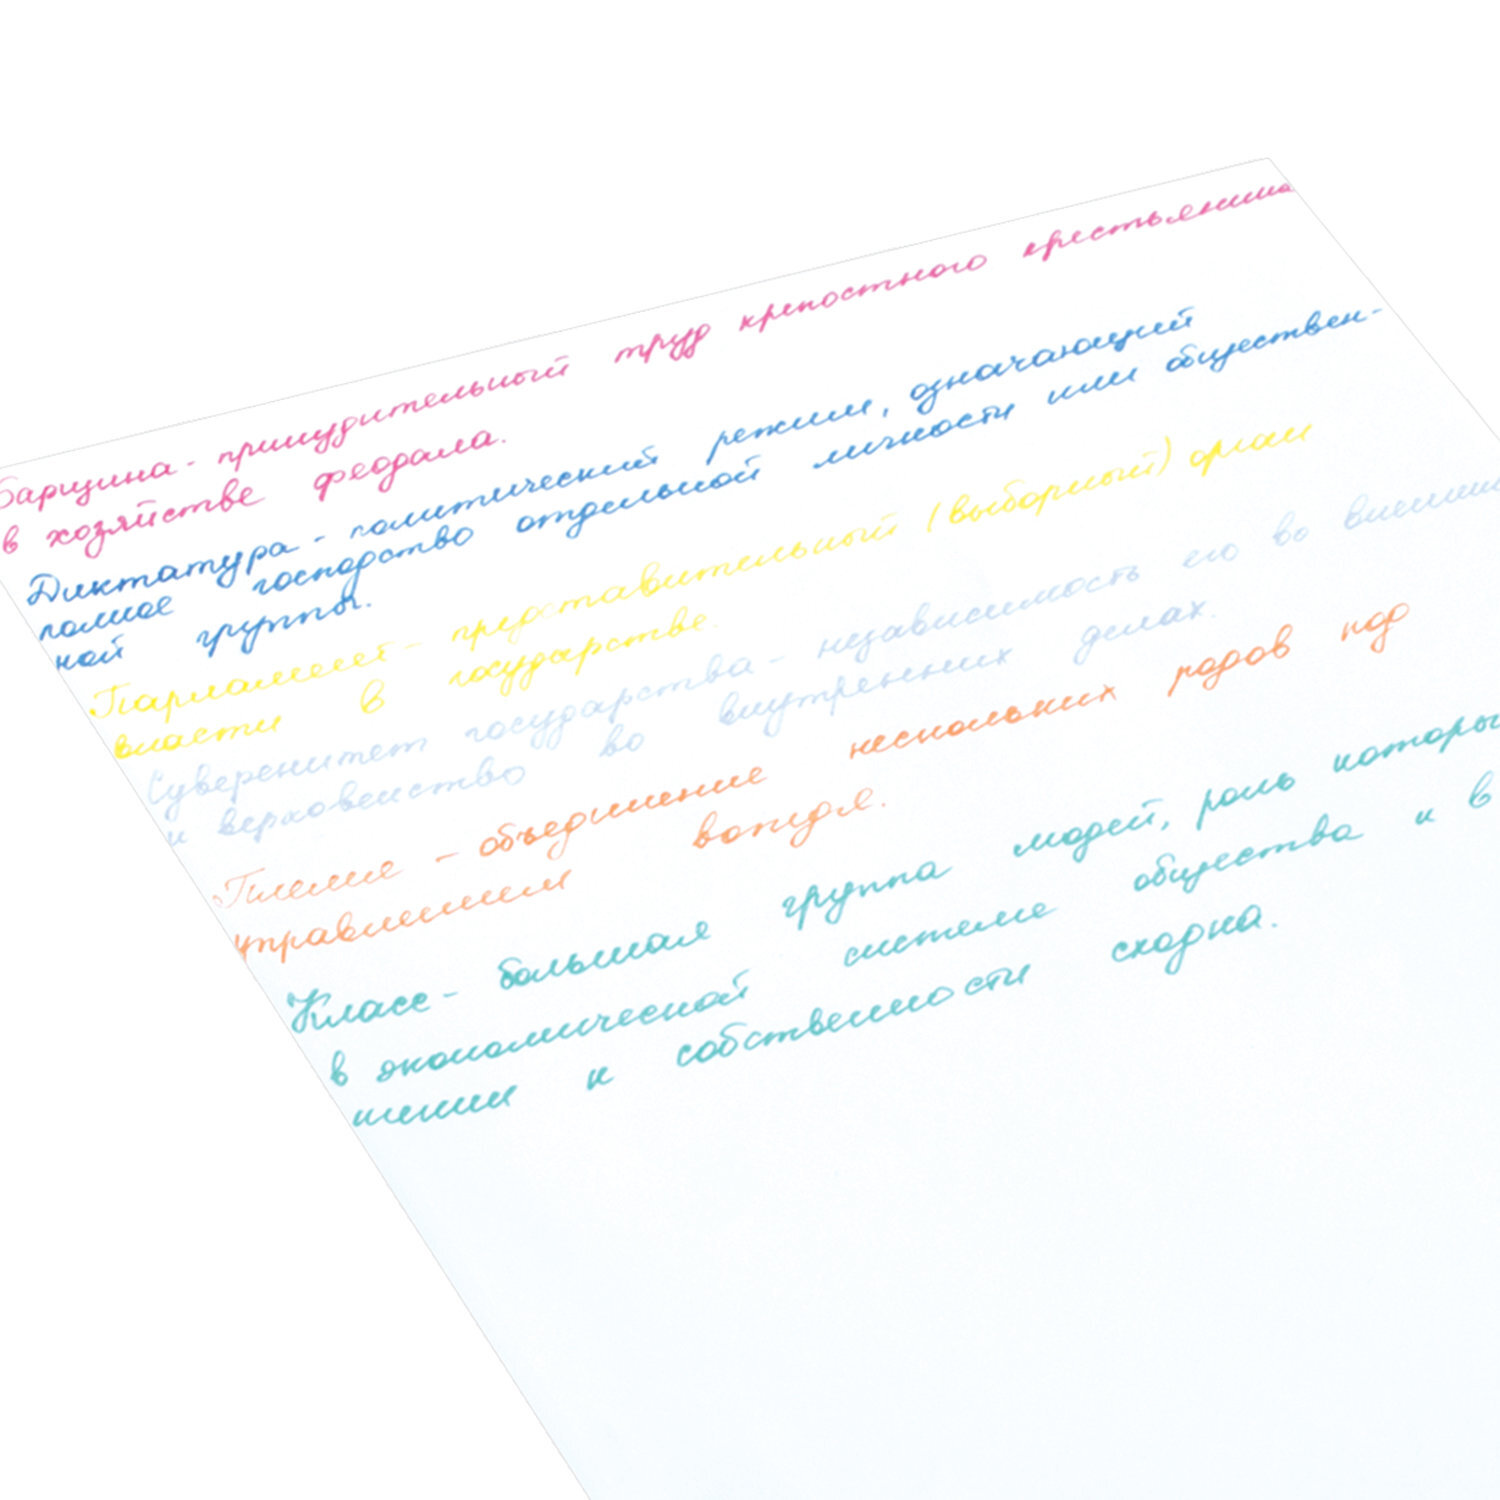 Барщина - принудительный труд крепостного крестьянина
в хозяйстве феодала.
Диктатура - политический режим, означающий
полное господство отдельной личности или обществен-
ной группы.
Парламент - представительный (выборный) орган
власти в государстве.
Суверенитет государства - независимость его во внешних
и верховенство во внутренних делах.
Племя - объединение нескольких родов под
управлением вождя.
Класс - большая группа людей, роль которы
в экономической системе общества и в
шении к собственности сходна.